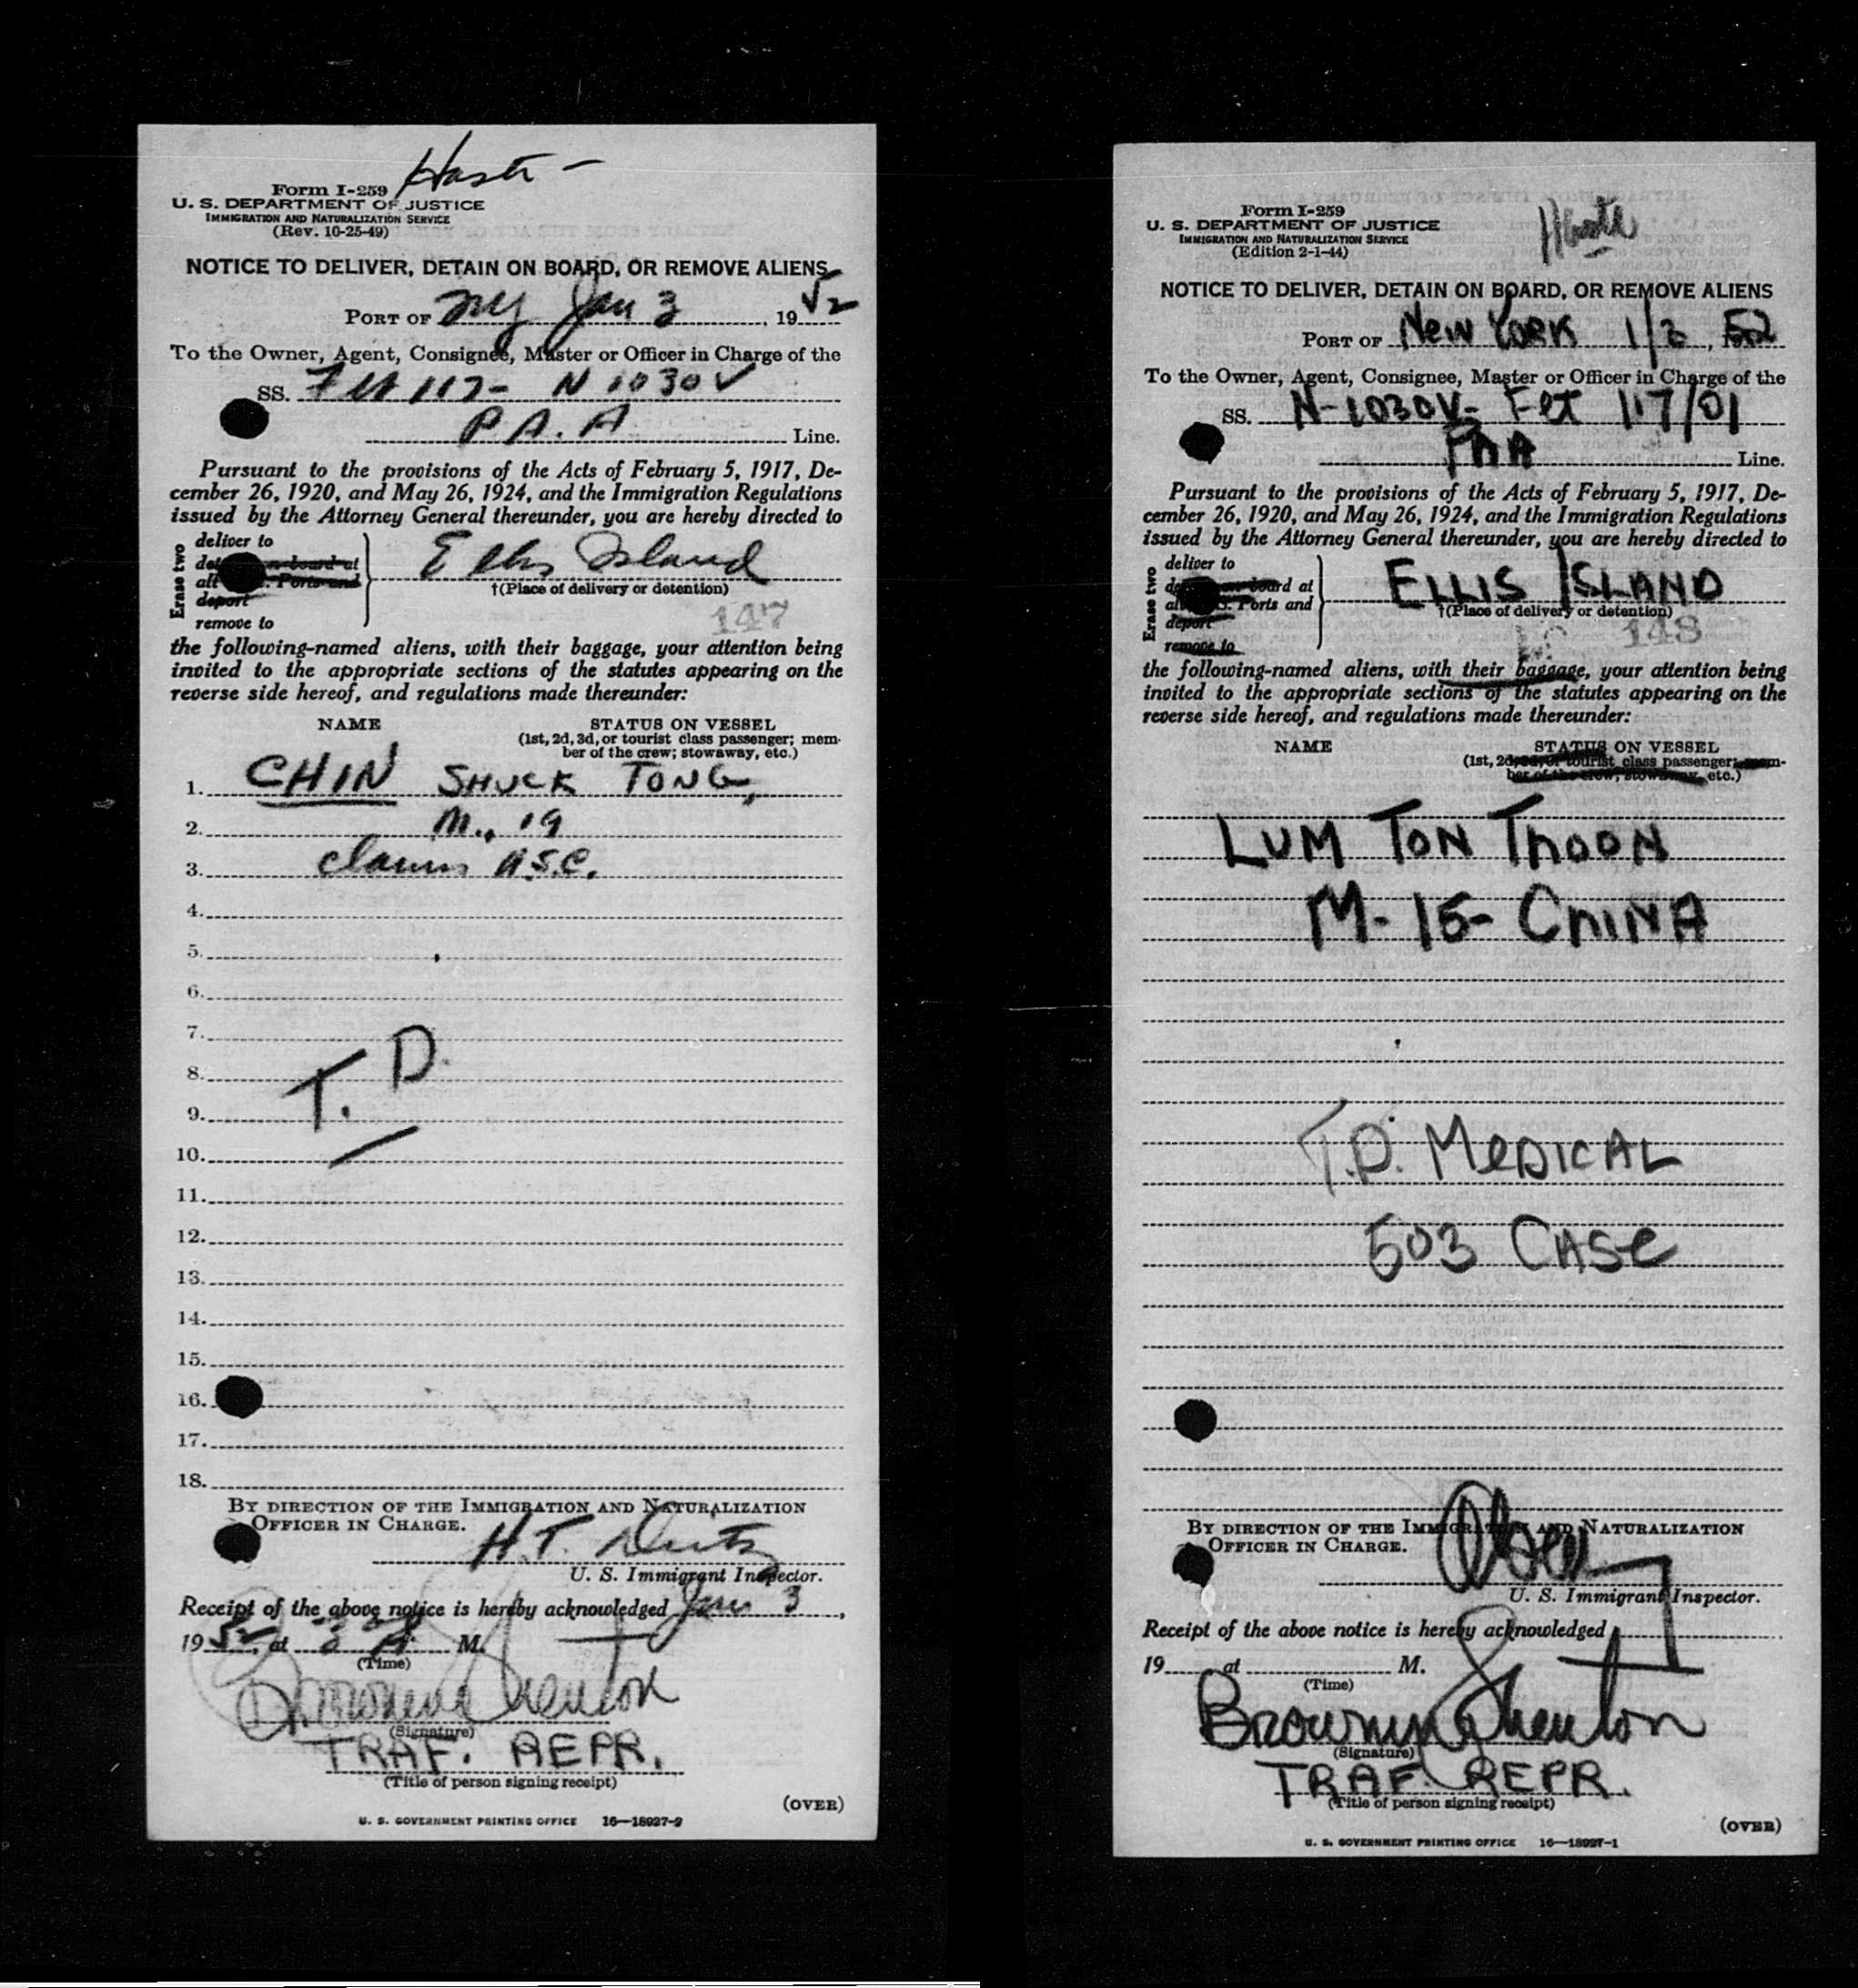 Form I-259
U. S. DEPARTMENT OF JUSTICE
IMMIGRATION AND NATURALIZATION SERVICE
(Rev. 10-25-49)
NOTICE TO DELIVER, DETAIN ON BOARD, OR REMOVE ALIENS
PORT OF NY Jan 3, 1952
To the Owner, Agent, Consignee, Master or Officer in Charge of the
SS. Flt 117- N 1030V
P.A.A Line.
Pursuant to the provisions of the Acts of February 5, 1917, De-
cember 26, 1920, and May 26, 1924, and the Immigration Regulations
issued by the Attorney General thereunder, you are hereby directed to
Erase two
deliver to
on board at
Ports and
deport
remove to
Ellis Island
†(Place of delivery or detention)
147
the following-named aliens, with their baggage, your attention being
invited to the appropriate sections of the statutes appearing on the
reverse side hereof, and regulations made thereunder:
NAME STATUS ON VESSEL
(1st, 2d, 3d, or tourist class passenger; mem-
ber of the crew; stowaway, etc.)
1. CHIN SHUCK TONG,
2. M., 19
3. claims U.S.C.
4.
5.
6.
7.
8. T. D.
9.
10.
11.
12.
13.
14.
15.
16.
17.
18.
BY DIRECTION OF THE IMMIGRATION AND NATURALIZATION
OFFICER IN CHARGE.
H.T.
U. S. Immigrant Inspector.
Receipt of the above notice is hereby acknowledged Jan 3,
1952, at M.
(Time)
Shenton
(Signature)
TRAF. REPR.
(Title of person signing receipt)
(OVER)
U. S. GOVERNMENT PRINTING OFFICE 16—18927-2
Form I-259
U. S. DEPARTMENT OF JUSTICE
IMMIGRATION AND NATURALIZATION SERVICE
(Edition 2-1-44)
NOTICE TO DELIVER, DETAIN ON BOARD, OR REMOVE ALIENS
PORT OF New York 1/3, 52
To the Owner, Agent, Consignee, Master or Officer in Charge of the
SS. N-1030V- Flt 117/01
PAA Line.
Pursuant to the provisions of the Acts of February 5, 1917, De-
cember 26, 1920, and May 26, 1924, and the Immigration Regulations
issued by the Attorney General thereunder, you are hereby directed to
Erase two
deliver to
board at
Ports and
deport
remove to
ELLIS ISLAND
†(Place of delivery or detention)
148
the following-named aliens, with their baggage, your attention being
invited to the appropriate sections of the statutes appearing on the
reverse side hereof, and regulations made thereunder:
NAME STATUS ON VESSEL
(1st, 2d, 3d, or tourist class passenger; mem-
ber of the crew; stowaway, etc.)
LUM TON THOON
M- 15- CHINA
T.D. MEDICAL
503 CASE
BY DIRECTION OF THE IMMIGRATION AND NATURALIZATION
OFFICER IN CHARGE.
U. S. Immigrant Inspector.
Receipt of the above notice is hereby acknowledged
19 at M.
(Time)
Shenton
(Signature)
TRAF. REPR.
(Title of person signing receipt)
(OVER)
U. S. GOVERNMENT PRINTING OFFICE 16—18927-1